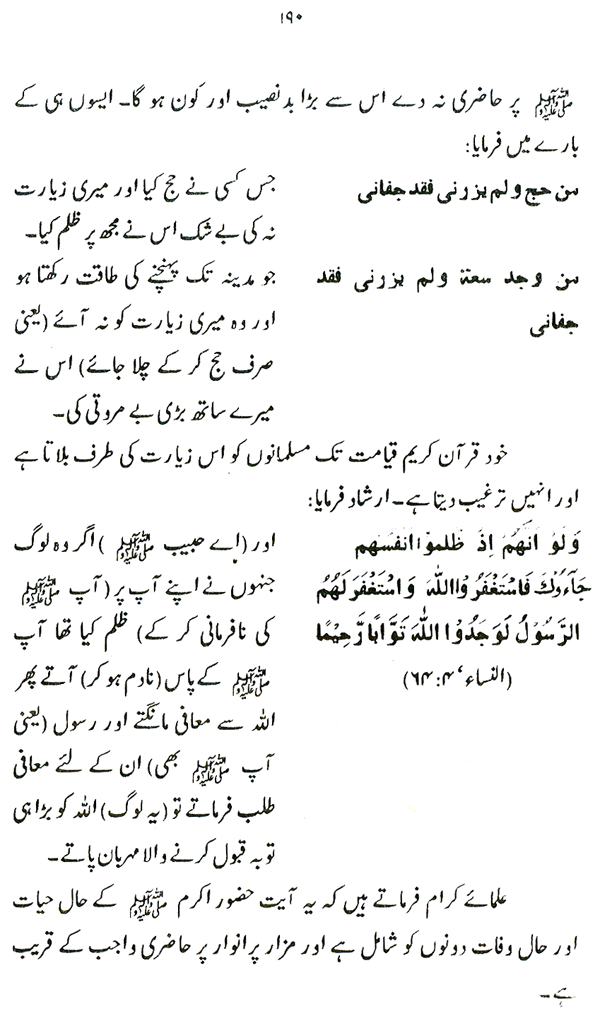 ۱۹۰
ﷺ پر حاضری نہ دے اس سے بڑا بدنصیب اور کون ہو گا۔ ایسوں ہی کے
بارے میں فرمایا:
من حج ولم یزرنی فقد جفانی
جس کسی نے حج کیا اور میری زیارت
نہ کی بے شک اس نے مجھ پر ظلم کیا۔
من وجد سعۃ ولم یزرنی فقد
جفانی
جو مدینہ تک پہنچنے کی طاقت رکھتا ہو
اور وہ میری زیارت کو نہ آئے (یعنی
صرف حج کر کے چلا جائے) اس نے
میرے ساتھ بڑی بے مروتی کی۔
خود قرآن کریم قیامت تک مسلمانوں کو اس زیارت کی طرف بلاتا ہے
اور انہیں ترغیب دیتا ہے۔ ارشاد فرمایا:
وَلَوْ اَنَّهُمْ اِذْ ظَلَمُوْا اَنْفُسَهُمْ
جَآءُوْكَ فَاسْتَغْفَرُوا اللّٰهَ وَاسْتَغْفَرَ لَهُمُ
الرَّسُوْلُ لَوَجَدُوا اللّٰهَ تَوَّابًا رَّحِيْمًا
(النساء، ۴:۶۴)
اور (اے حبیب ﷺ) اگر وہ لوگ
جنہوں نے اپنے آپ پر (آپ ﷺ
کی نافرمانی کر کے) ظلم کیا تھا آپ
ﷺ کے پاس (نادم ہو کر) آتے پھر
اللہ سے معافی مانگتے اور رسول (یعنی
آپ ﷺ بھی) ان کے لئے معافی
طلب فرماتے تو (یہ لوگ) اللہ کو بڑا ہی
توبہ قبول کرنے والا مہربان پاتے۔
علمائے کرام فرماتے ہیں کہ یہ آیت حضور اکرم ﷺ کے حال حیات
اور حال وفات دونوں کو شامل ہے اور مزار پرانوار پر حاضری واجب کے قریب
ہے۔